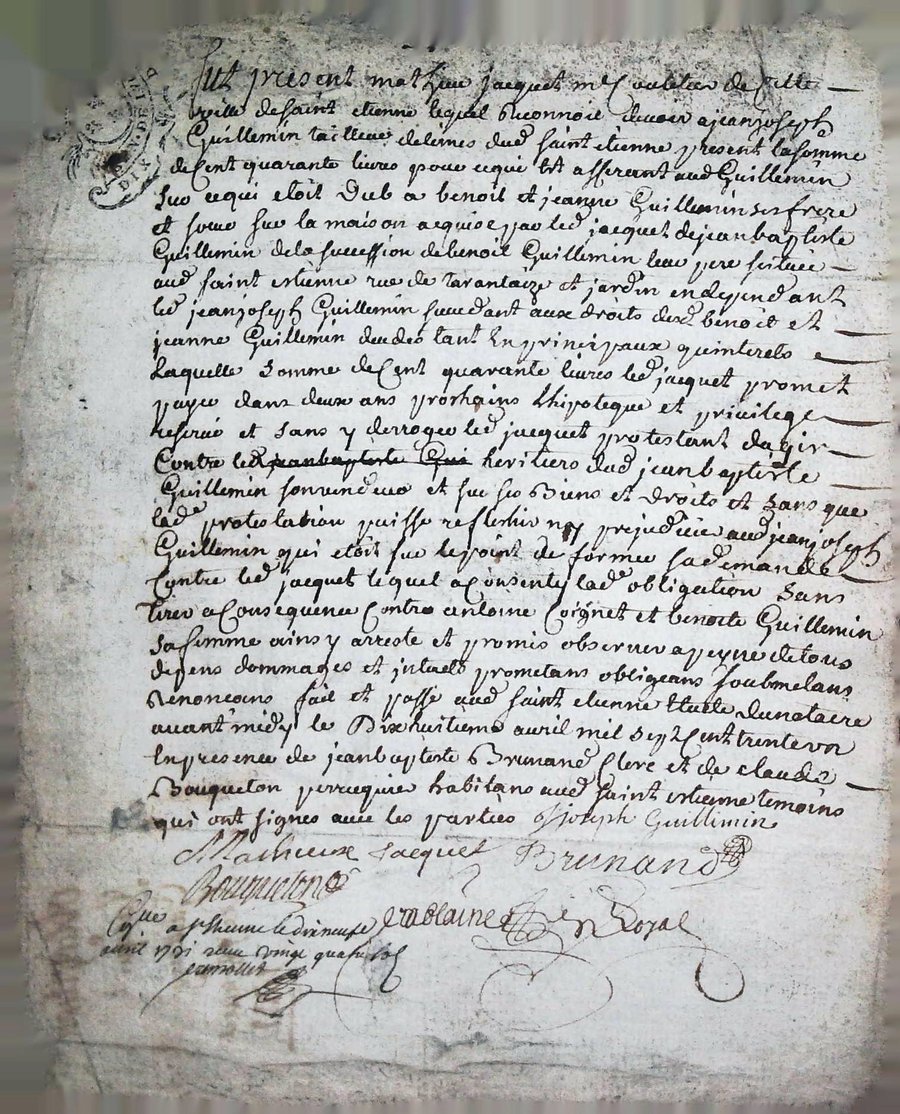 Fut present mathieu Jacquet me coutelier de cette
ville de saint etienne lequel reconnoit devoir a jean joseph
Guillemin tailleur de limes dud saint etienne present la somme
de cent quarante livres pour ce qui est afferant aud Guillemin
sur ce qui etoit dub a benoit et jeanne Guillemin ses frere
et soeur sur la maison acquise par led jacquet de jean baptiste
Guillemin de la succession de benoit Guillemin leur pere scituée
aud saint estienne rue de tarantaize et jardin en dependant
led jean joseph Guillemin succedant aux droits desd benoit et
jeanne Guillemin tant en principaux qu interets
Laquelle somme de cent quarante livres led jacquet promet
payer dans deux ans prochains lhipoteque et privilege
reservé et sans y deroger led jacquet protestant dagir
Contre les jean baptiste Gui heritiers dud jean baptiste
Guillemin son vendeur et sur ses biens et droits et sans que
lade protestation puisse reflechir ny prejudicier aud jean joseph
Guillemin qui etoit sur le point de former sa demande
Contre led jacquet lequel a consenty lade obligation sans
tirer a consequence contre antoine Coignet et benoite Guillemin
sa femme ainsy arresté et promis observer a peyne de tous
depens dommages et interets prometans obligeans soubmetans
renonceans fait et passé aud saint etienne etude du notaire
avant midy le Dix huitieme avril mil sept cent trente un
En presence de jean baptiste Brunand Clerc et de claude
Bouqueton perruquier habitans aud saint estienne temoins
qui ont signés avec les parties J Joseph Guillimin
Mathieux Jacquet Brunand
Bouqueton
Cqué a st etienne le dixneufe
avril 1731 receu vingt quatre sols